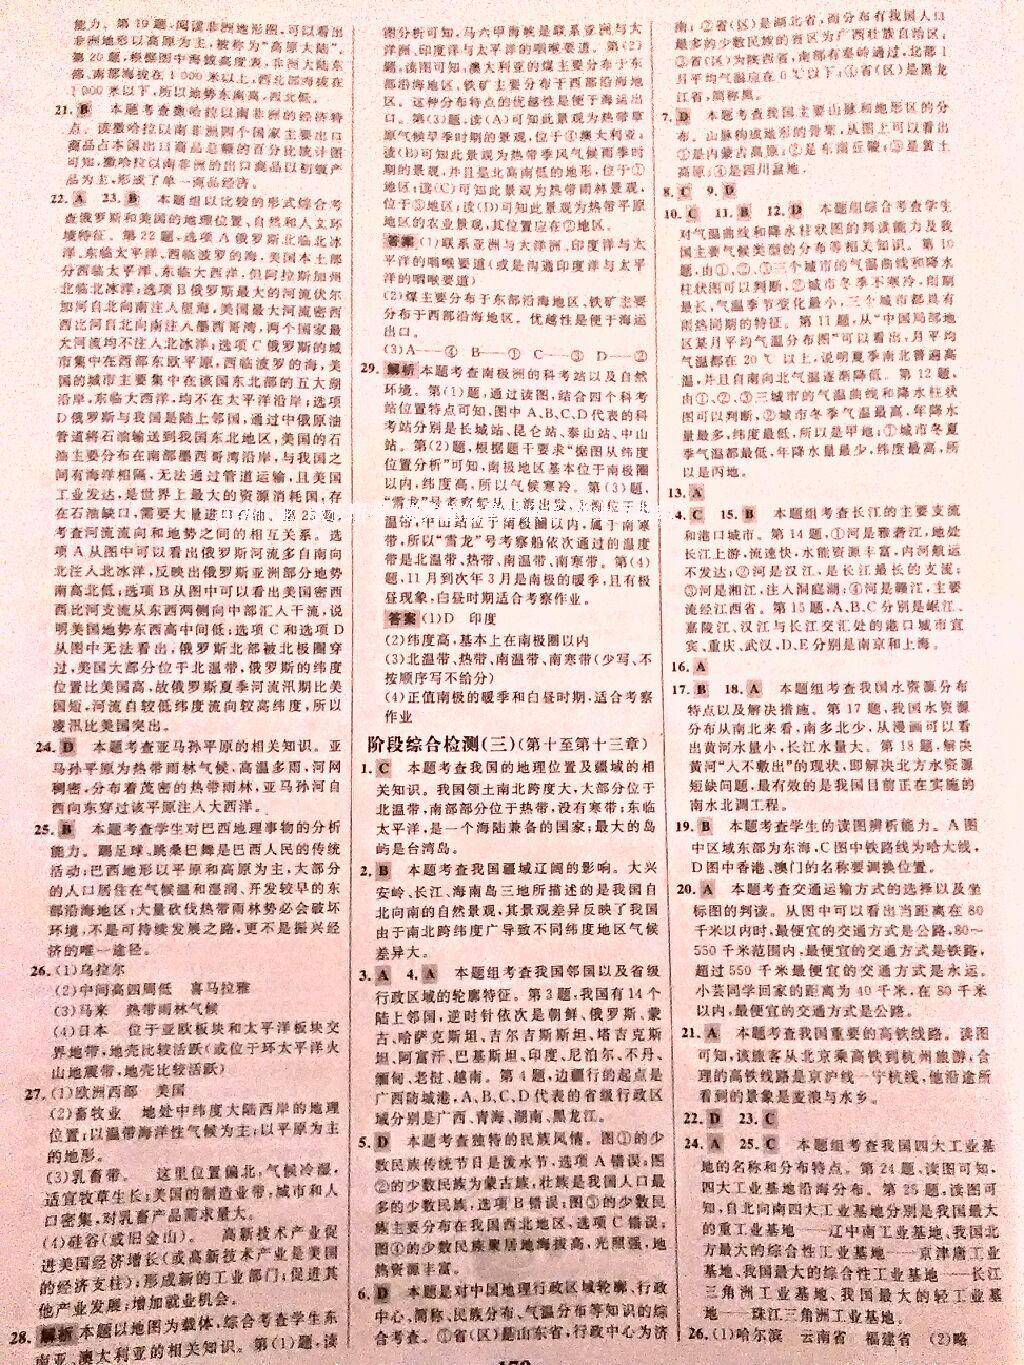 能力。第19题,阅读非洲地形图,可以看出
非洲地形以高原为主,被称为“高原大陆”。
第20题,根据图中海拔高度表,非洲大陆东
部、南部海拔在1 000米以上,西北部海拔在
1 000米以下,所以地势东南高,西北低。
21. B 本题考查撒哈拉以南非洲的经济特
点。读撒哈拉以南非洲四个国家主要出口
商品占本国出口商品总额的百分比统计图
可知,撒哈拉以南非洲的出口商品以初级产
品为主,形成了单一商品经济。
22. A 23. B 本题组以比较的形式综合考
查俄罗斯和美国的地理位置、自然和人文环
境特征。第22题,选项A俄罗斯北临北冰
洋、东临太平洋、西临波罗的海,美国本土部
分西临太平洋、东临大西洋,但阿拉斯加州
北临北冰洋;选项B俄罗斯最大的河流伏尔
加河自北向南注入里海,美国最大河流密西
西比河自北向南注入墨西哥湾,两个国家最
大河流均不注入北冰洋;选项C俄罗斯的城
市集中在西部东欧平原,西临波罗的海,美
国的城市主要集中在该国东北部的五大湖
沿岸,东临大西洋,均不在太平洋沿岸;选项
D俄罗斯与我国是陆上邻国,通过中俄原油
管道将石油输送到我国东北地区,美国的石
油主要分布在南部墨西哥湾沿岸,与我国之
间有海洋相隔,无法通过管道运输,且美国
工业发达,是世界上最大的资源消耗国,存
在石油缺口,需要大量进口石油。第23题,
考查河流流向和地势之间的相互关系。选
项A从图中可以看出俄罗斯河流多自南向
北注入北冰洋,反映出俄罗斯亚洲部分地势
南高北低;选项B从图中可以看出美国密西
西比河支流从东西两侧向中部汇入干流,说
明美国地势东西高中间低;选项C和选项D
从图中无法看出,俄罗斯北部被北极圈穿
过,美国大部分位于北温带,俄罗斯的纬度
位置比美国高,故俄罗斯夏季河流汛期比美
国短,河流自较低纬度流向较高纬度,所以
凌汛比美国突出。
24. D 本题考查亚马孙平原的相关知识。亚
马孙平原为热带雨林气候,高温多雨,河网
稠密,分布着茂密的热带雨林,亚马孙河自
西向东穿过该平原注入大西洋。
25. B 本题考查学生对巴西地理事物的分析
能力。踢足球、跳桑巴舞是巴西人民的传统
活动;巴西地形以平原和高原为主,大部分
的人口居住在气候温和湿润、开发较早的东
部沿海地区;大量砍伐热带雨林势必会破坏
环境,不是可持续发展之路,更不是振兴经
济的唯一途径。
26. (1)乌拉尔
(2)中间高四周低 喜马拉雅
(3)马来 热带雨林气候
(4)日本 位于亚欧板块和太平洋板块交
界地带,地壳比较活跃(或位于环太平洋火
山地震带,地壳比较活跃)
27. (1)欧洲西部 美国
(2)畜牧业 地处中纬度大陆西岸的地理
位置;以温带海洋性气候为主;以平原为主
的地形。
(3)乳畜带。 这里位置偏北,气候冷湿,
适宜牧草生长;美国的制造业带,城市和人
口密集,对乳畜产品需求量大。
(4)硅谷(或旧金山)。 高新技术产业促
进美国经济增长(或高新技术产业是美国
的经济支柱);形成新的工业部门;促进其
他产业发展;增加就业机会。
28. 解析 本题以地图为载体,综合考查学生东
南亚、澳大利亚的相关知识。第(1)题,读
图分析可知,马六甲海峡是联系亚洲与大
洋洲、印度洋与太平洋的咽喉要道。第(2)
题,读图可知,澳大利亚的煤主要分布于东
部沿海地区,铁矿主要分布于西部沿海地
区。这种分布特点的优越性是便于海运出
口。第(3)题,读(A)可知此景观为热带草
原气候旱季时期的景观,位于④澳大利亚;
读(B)可知此景观为热带季风气候雨季时
期的景观,并且是北高南低的地形,位于①
地区;读(C)可知此景观为热带雨林景观,
位于③地区;读(D)可知此景观为热带平原
地区的农业景观,其位置应在②地区。
答案 (1)联系亚洲与大洋洲、印度洋与太
平洋的咽喉要道(或是沟通印度洋与太平
洋的咽喉要道)
(2)煤主要分布于东部沿海地区、铁矿主要
分布于西部沿海地区。优越性是便于海运
出口。
(3)A——④ B——① C——③ D——②
29. 解析 本题考查南极洲的科考站以及自然
环境。第(1)题,通过读图,结合四个科考
站位置特点可知,图中A、B、C、D代表的科
考站分别是长城站、昆仑站、泰山站、中山
站。第(2)题,根据题干要求“据图从纬度
位置分析”可知,南极地区基本位于南极圈
以内,纬度高,所以气候寒冷。第(3)题,
“雪龙”号考察船从上海出发,上海位于北
温带,中山站位于南极圈以内,属于南寒
带,所以“雪龙”号考察船依次通过的温度
带是北温带、热带、南温带、南寒带。第(4)
题,11月到次年3月是南极的暖季,且有极
昼现象,白昼时期适合考察作业。
答案 (1)D 印度
(2)纬度高,基本上在南极圈以内
(3)北温带、热带、南温带、南寒带(少写、不
按顺序写不给分)
(4)正值南极的暖季和白昼时期,适合考察
作业
阶段综合检测(三)(第十至第十三章)
1. C 本题考查我国的地理位置及疆域的相
关知识。我国领土南北跨度大,大部分位于
北温带,南部部分位于热带,没有寒带;东临
太平洋,是一个海陆兼备的国家;最大的岛
屿是台湾岛。
2. B 本题考查我国疆域辽阔的影响。大兴
安岭、长江、海南岛三地所描述的是我国自
北向南的自然景观,其景观差异反映了我国
由于南北跨纬度广导致不同纬度地区气候
差异大。
3. A 4. A 本题组考查我国邻国以及省级
行政区域的轮廓特征。第3题,我国有14个
陆上邻国,逆时针依次是朝鲜、俄罗斯、蒙
古、哈萨克斯坦、吉尔吉斯斯坦、塔吉克斯
坦、阿富汗、巴基斯坦、印度、尼泊尔、不丹、
缅甸、老挝、越南。第4题,边疆行的起点是
广西防城港,A、B、C、D代表的省级行政区
域分别是广西、青海、湖南、黑龙江。
5. D 本题考查独特的民族风情。图①的少
数民族传统节日是泼水节,选项A错误;图
②的少数民族为蒙古族,壮族是我国人口最
多的少数民族,选项B错误;图③的少数民
族主要分布在我国西北地区,选项C错误;
图④的少数民族聚居地海拔高,光照强,地
热资源丰富。
6. D 本题是对中国地理行政区域轮廓、行政
中心、简称、民族分布、气温分布等知识的综
合考查。①省(区)是山东省,行政中心为济
南;②省(区)是湖北省,湖分布有我国人口
最多的少数民族的省区为广西壮族自治区;
③省(区)为陕西省,南部有秦岭通过,北部1
月平均气温应在0 ℃以下;④省(区)是黑龙
江省,简称黑。
7. D 本题考查我国主要山脉和地形区的分
布。山脉构成地形的骨架,从图上可以看出
①是内蒙古高原;②是东南丘陵;③是黄土
高原;④是四川盆地。
8. C 9. D
10. C 11. B 12. D 本题组综合考查学生
对气温曲线和降水柱状图的判读能力及我
国主要气候类型的分布等相关知识。第10
题,由①、②、③三个城市的气温曲线和降水
柱状图可以判断,②城市冬季不寒冷,雨期
最长,气温季节变化最小,三个城市都具有
雨热同期的特征。第11题,从“中国局部地
区某月平均气温分布图”可以看出,月平均
气温都在20 ℃以上,说明夏季南北普遍高
温,并且自南向北气温逐渐降低。第12题,
由①、②、③三城市的气温曲线和降水柱状
图可以判断,②城市冬季气温最高,年降水
量最多,纬度最低,所以是甲地;①城市冬夏
季气温都最低,年降水量最少,纬度最高,所
以是丙地。
13. A
4. C 15. B 本题组考查长江的主要支流
和港口城市。第14题,①河是雅砻江,地处
长江上游,流速快,水能资源丰富,内河航运
不发达;②河是汉江,是长江最长的支流;
③河是湘江,注入洞庭湖;④河是赣江,主要
流经江西省。第15题,A、B、C分别是岷江、
嘉陵江、汉江与长江交汇处的港口城市宜
宾、重庆、武汉,D、E分别是南京和上海。
16. A
17. B 18. A 本题组考查我国水资源分布
特点以及解决措施。第17题,我国水资源
分布从南北来看,南多北少,从漫画可以看
出黄河水量小,长江水量大。第18题,解决
黄河“入不敷出”的现状,即解决北方水资源
短缺问题,最有效的是我国目前正在实施的
南水北调工程。
19. B 本题考查学生的读图辨析能力。A图
中区域东部为东海,C图中铁路线为哈大线,
D图中香港、澳门的名称要调换位置。
20. A 本题考查交通运输方式的选择以及坐
标图的判读。从图中可以看出当距离在80
千米以内时,最便宜的交通方式是公路,80~
550千米范围内,最便宜的交通方式是铁路,
超过550千米最便宜的交通方式是水运。
小芸同学回家的距离为40千米,在80千米
以内,最便宜的交通方式是公路。
21. A 本题考查我国重要的高铁线路。读图
可知,该旅客从北京乘高铁到杭州旅游,合
理的高铁线路是京沪线—宁杭线,他沿途所
看到的景象是麦浪与水乡。
22. D 23. C
24. A 25. C 本题组考查我国四大工业基
地的名称和分布特点。第24题,读图可知,
四大工业基地沿海分布。第25题,读图可
知,自北向南四大工业基地分别是我国最大
的重工业基地——辽中南工业基地、我国北
方最大的综合性工业基地——京津唐工业
基地、我国最大的综合性工业基地——长江
三角洲工业基地、我国最大的轻工业基
地——珠江三角洲工业基地。
26. (1)哈尔滨 云南省 福建省 (2)略